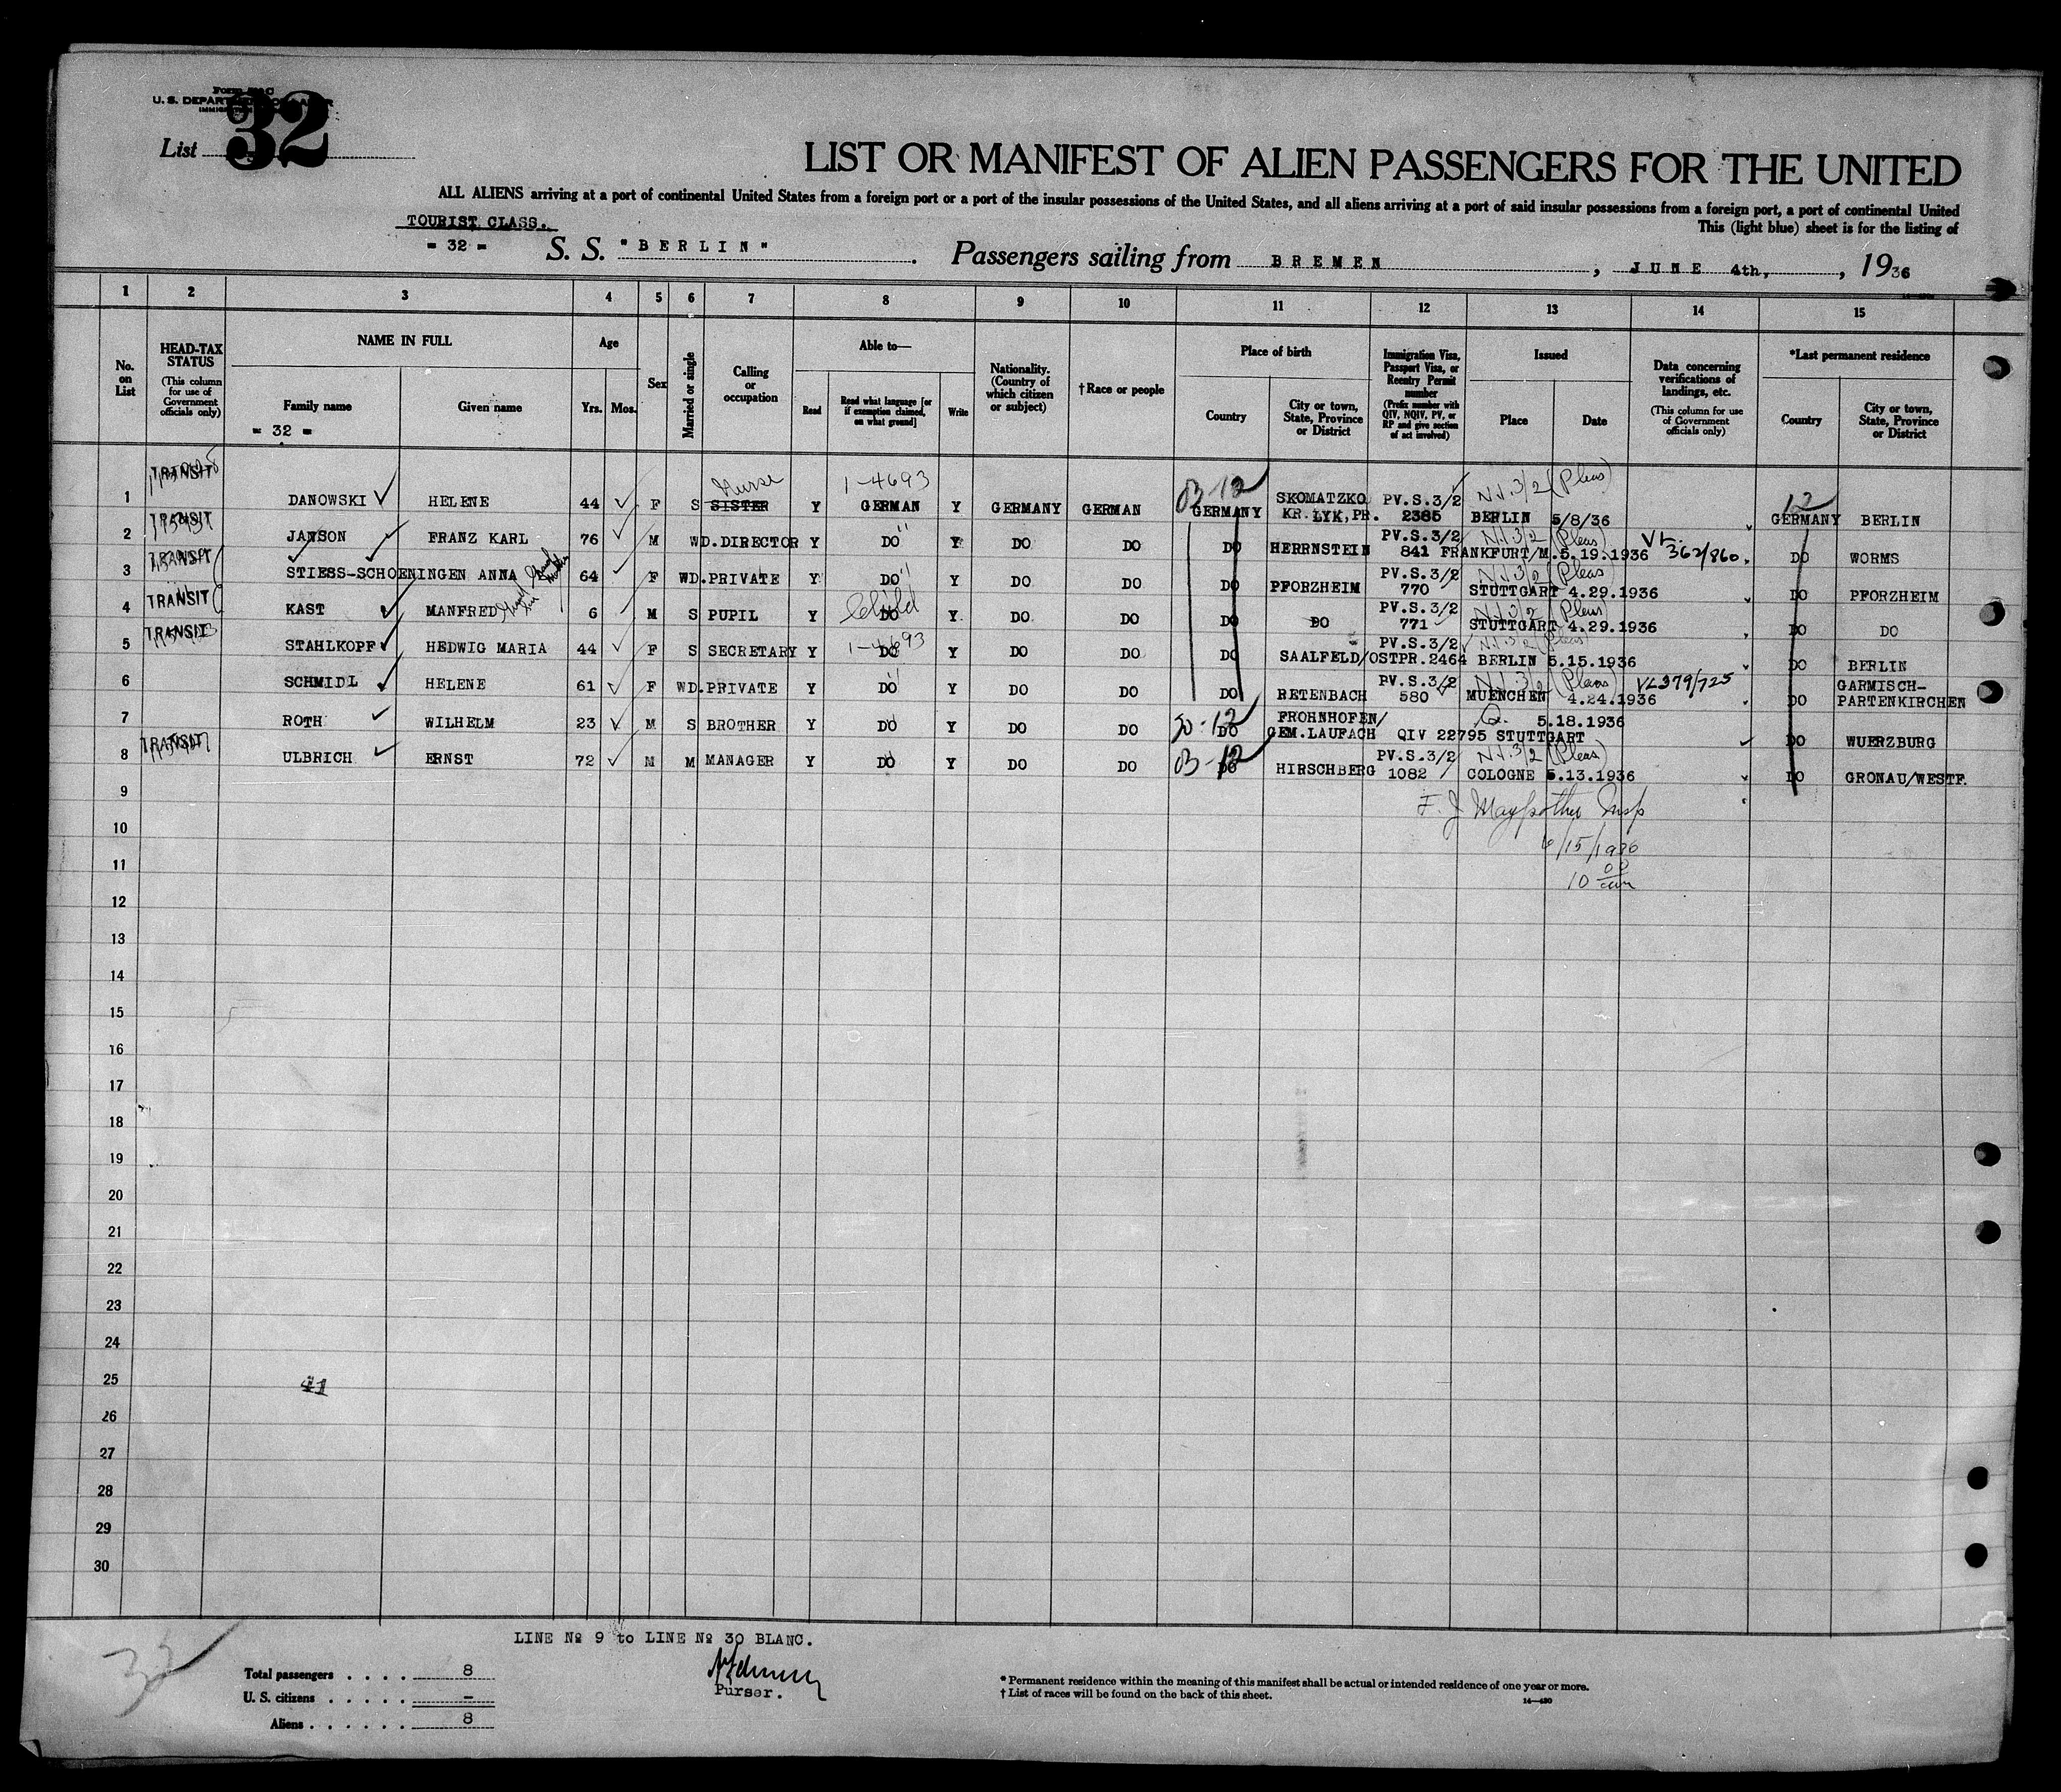 U. S. DEPARTMENT OF LABOR
List 32
LIST OR MANIFEST OF ALIEN PASSENGERS FOR THE UNITED
ALL ALIENS arriving at a port of continental United States from a foreign port or a port of the insular possessions of the United States, and all aliens arriving at a port of said insular possessions from a foreign port, a port of continental United
This (light blue) sheet is for the listing of
TOURIST CLASS.
= 32 = S. S. "BERLIN" . Passengers sailing from BREMEN , JUNE 4th, , 1936
1 2 3 4 5 6 7 8 9 10 11 12 13 14 15
No. on List
HEAD-TAX STATUS (This column for use of Government officials only)
NAME IN FULL
Family name Given name
= 32 =
Age
Yrs. Mos.
Sex
Married or single
Calling or occupation
Able to—
Read Read what language [or if exemption claimed, on what ground] Write
Nationality. (Country of which citizen or subject)
†Race or people
Place of birth
Country City or town, State, Province or District
Immigration Visa, Passport Visa, or Reentry Permit number (Prefix number with QIV, NQIV, PV, or RP and give section of act involved)
Issued
Place Date
Data concerning verifications of landings, etc. (This column for use of Government officials only)
*Last permanent residence
Country City or town, State, Province or District
1 TRANSIT DANOWSKI HELENE 44 F S SISTER Nurse Y GERMAN 1-4693 Y GERMANY GERMAN GERMANY SKOMATZKO KR. LYK,PR. PV.S.3/2 2385 BERLIN 5/8/36 N.I.3/2 (Pleas) 12 GERMANY BERLIN
2 TRANSIT JANSON FRANZ KARL 76 M WD. DIRECTOR Y DO " Y DO DO DO HERRNSTEIN PV.S.3/2 841 FRANKFURT/M. 5.19.1936 N.I.3/2 (Pleas) VL. 362/860 DO WORMS
3 TRANSIT STIESS-SCHOENINGEN ANNA Grand Mother 64 F WD. PRIVATE Y DO " Y DO DO DO PFORZHEIM PV.S.3/2 770 STUTTGART 4.29.1936 N.I.3/2 (Pleas) DO PFORZHEIM
4 TRANSIT KAST MANFRED Grand Son 6 M S PUPIL Y DO Child Y DO DO DO DO PV.S.3/2 771 STUTTGART 4.29.1936 N.I.3/2 (Pleas) DO DO
5 TRANSIT STAHLKOPF HEDWIG MARIA 44 F S SECRETARY Y DO 1-4693 Y DO DO DO SAALFELD/OSTPR. PV.S.3/2 2464 BERLIN 5.15.1936 N.I.3/2 (Pleas) DO BERLIN
6 SCHMIDL HELENE 61 F WD. PRIVATE Y DO " Y DO DO DO RETENBACH PV.S.3/2 580 MUENCHEN 4.24.1936 N.I.3/2 (Pleas) VL379/725 DO GARMISCH-PARTENKIRCHEN
7 ROTH WILHELM 23 M S BROTHER Y DO Y DO DO DO FROHNHOFEN/ GEM.LAUFACH QIV 22795 STUTTGART 5.18.1936 Q. DO WUERZBURG
8 TRANSIT ULBRICH ERNST 72 M M MANAGER Y DO Y DO DO DO HIRSCHBERG PV.S.3/2 1082 COLOGNE 5.13.1936 N.I.3/2 (Pleas) DO GRONAU/WESTF.
9
10
11
12
13
14
15
16
17
18
19
20
21
22
23
24
25 41
26
27
28
29
30
6/15/1936
10 00 am
LINE № 9 to LINE № 30 BLANC.
Purser.
32
Total passengers . . . . 8
U. S. citizens . . . . . –
Aliens . . . . . . 8
* Permanent residence within the meaning of this manifest shall be actual or intended residence of one year or more.
† List of races will be found on the back of this sheet.
14—430